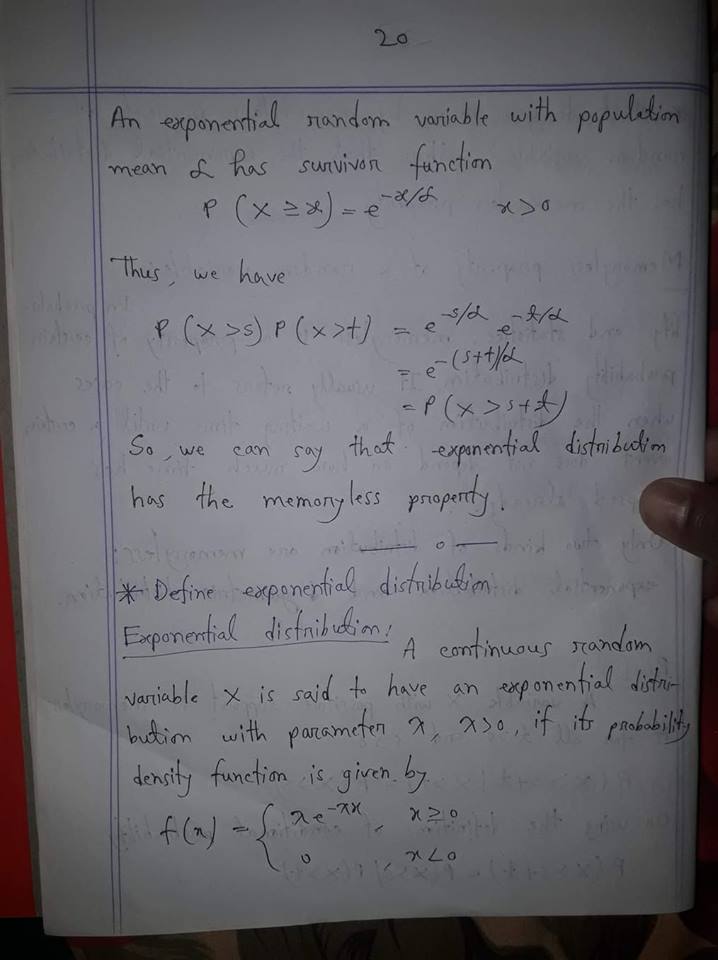 20
An exponential random variable with population
mean α has survivor function
P (X ≥ x) = e^{-x/α}   x > 0
Thus, we have
P (X > s) P (X > t) = e^{-s/α} e^{-t/α}
= e^{-(s+t)/α}
= P (X > s + t)
So, we can say that exponential distribution
has the memoryless property.
* Define exponential distribution.
Exponential distribution: A continuous random
variable X is said to have an exponential distri-
bution with parameter λ, λ > 0, if its probability
density function is given by
f(x) = { λ e^{-λx}, x ≥ 0
0   x < 0